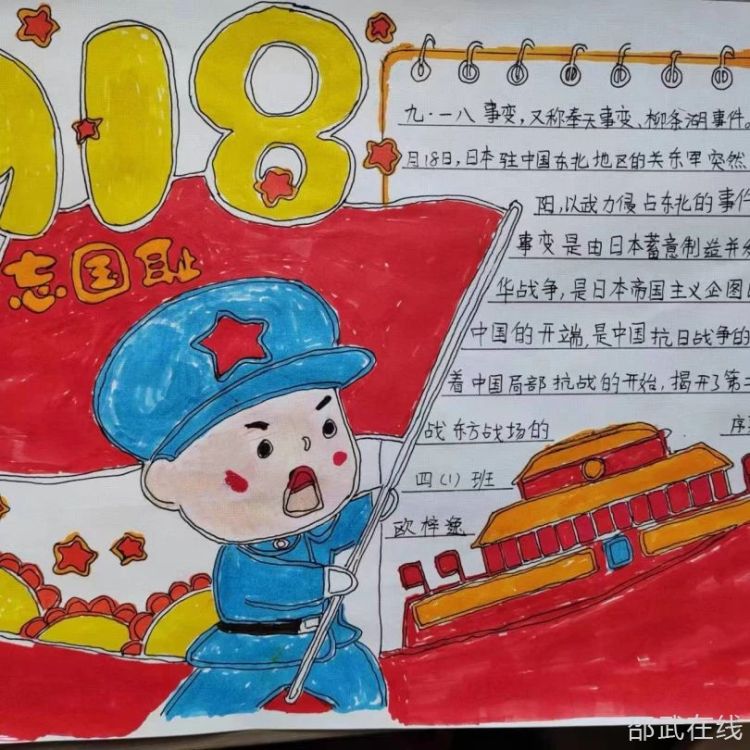 918
志国耻
九·一八事变，又称奉天事变、柳条湖事件。
月18日，日本驻中国东北地区的关东军突然
阳，以武力侵占东北的事件
事变是由日本蓄意制造并
华战争，是日本帝国主义企图
中国的开端，是中国抗日战争的
着中国局部抗战的开始，揭开了第二
战东方战场的 序
四（1）班
欧梓逸
邵武在线